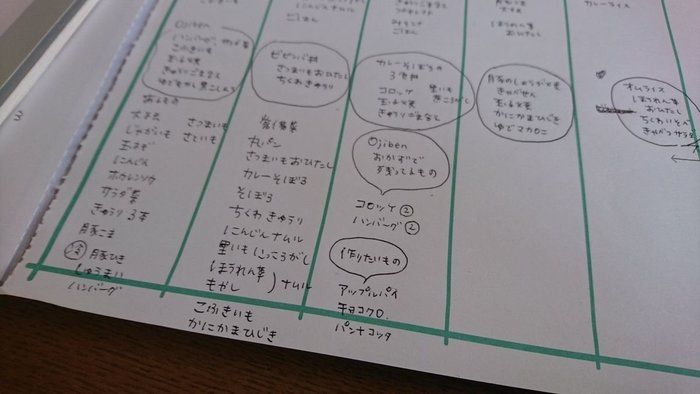 にんじんナムル
ごはん
ごはん
カレーライス
おひたし
Ojiben
ハンバーグ、サラダ菜
こふきいも
玉子焼
きゅうりごま
ビビンバ丼
さつまいもおひたし
ちくわきゅうり
カレーそぼろの
3色丼
コロッケ
玉子焼
きゅうりごまなし
里いも
煮ころがし
豚のしょうが
玉子焼
かにかまひじき
ゆでマカロニ
オムライス
ほうれん草
おひたし
ちくわいそべ
キャベツサラダ
じゃがいも
玉ネギ
にんじん
ホウレンソウ
サラダ菜
きゅうり3本
豚こま
冷 豚ひき
しゅうまい
ハンバーグ
さつまいも
さといも
常備菜
丸パン
さつまいもおひたし
カレーそぼろ
そぼろ
ちくわきゅうり
にんじんナムル
里いもにっころがし
ほうれん草
もやし )ナムル
こふきいも
かにかまひじき
Ojiben
おかずで
残ってるもの
コロッケ②
ハンバーグ②
作りたいもの
アップルパイ
チョコクロ
パンナコッタ